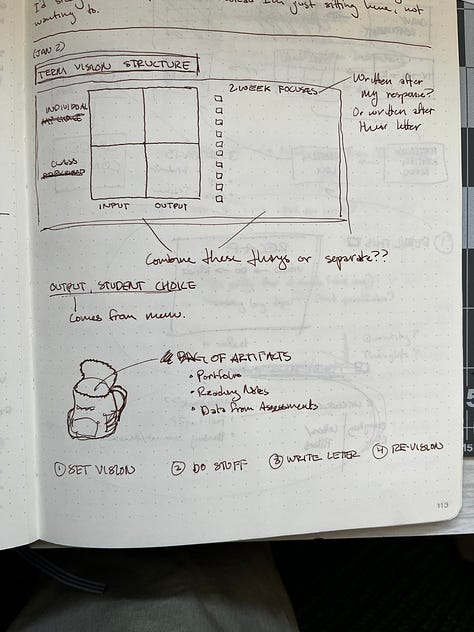 just sitting here, not
wanting to.
(JAN 2)
TERM VISION STRUCTURE
2 WEEK FOCUSES
Written after
my response?
Or written after
their letter
INDIVIDUAL
CLASS
INPUT OUTPUT
Combine these things or separate??
OUTPUT, STUDENT CHOICE
Comes from menu.
OF ARTIFACTS
• Portfolio
• Reading Notes
• Data from Assessments
① SET VISION ② DO STUFF ③ WRITE LETTER ④ RE-VISION
113
15